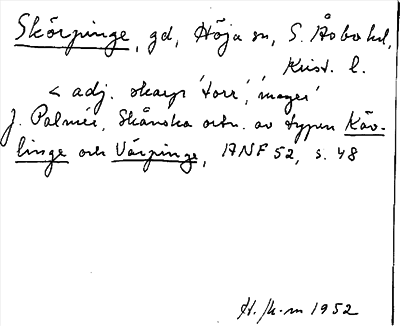 Skörpinge, gd, Höja sn, S. Åsbo hd,
Krist. l.
< adj. skarp 'torr', 'mager'
J. Palmér, Skånska ortn. av typen Käv-
linge och Värpinge, ANF 52, s. 48
H. 1952